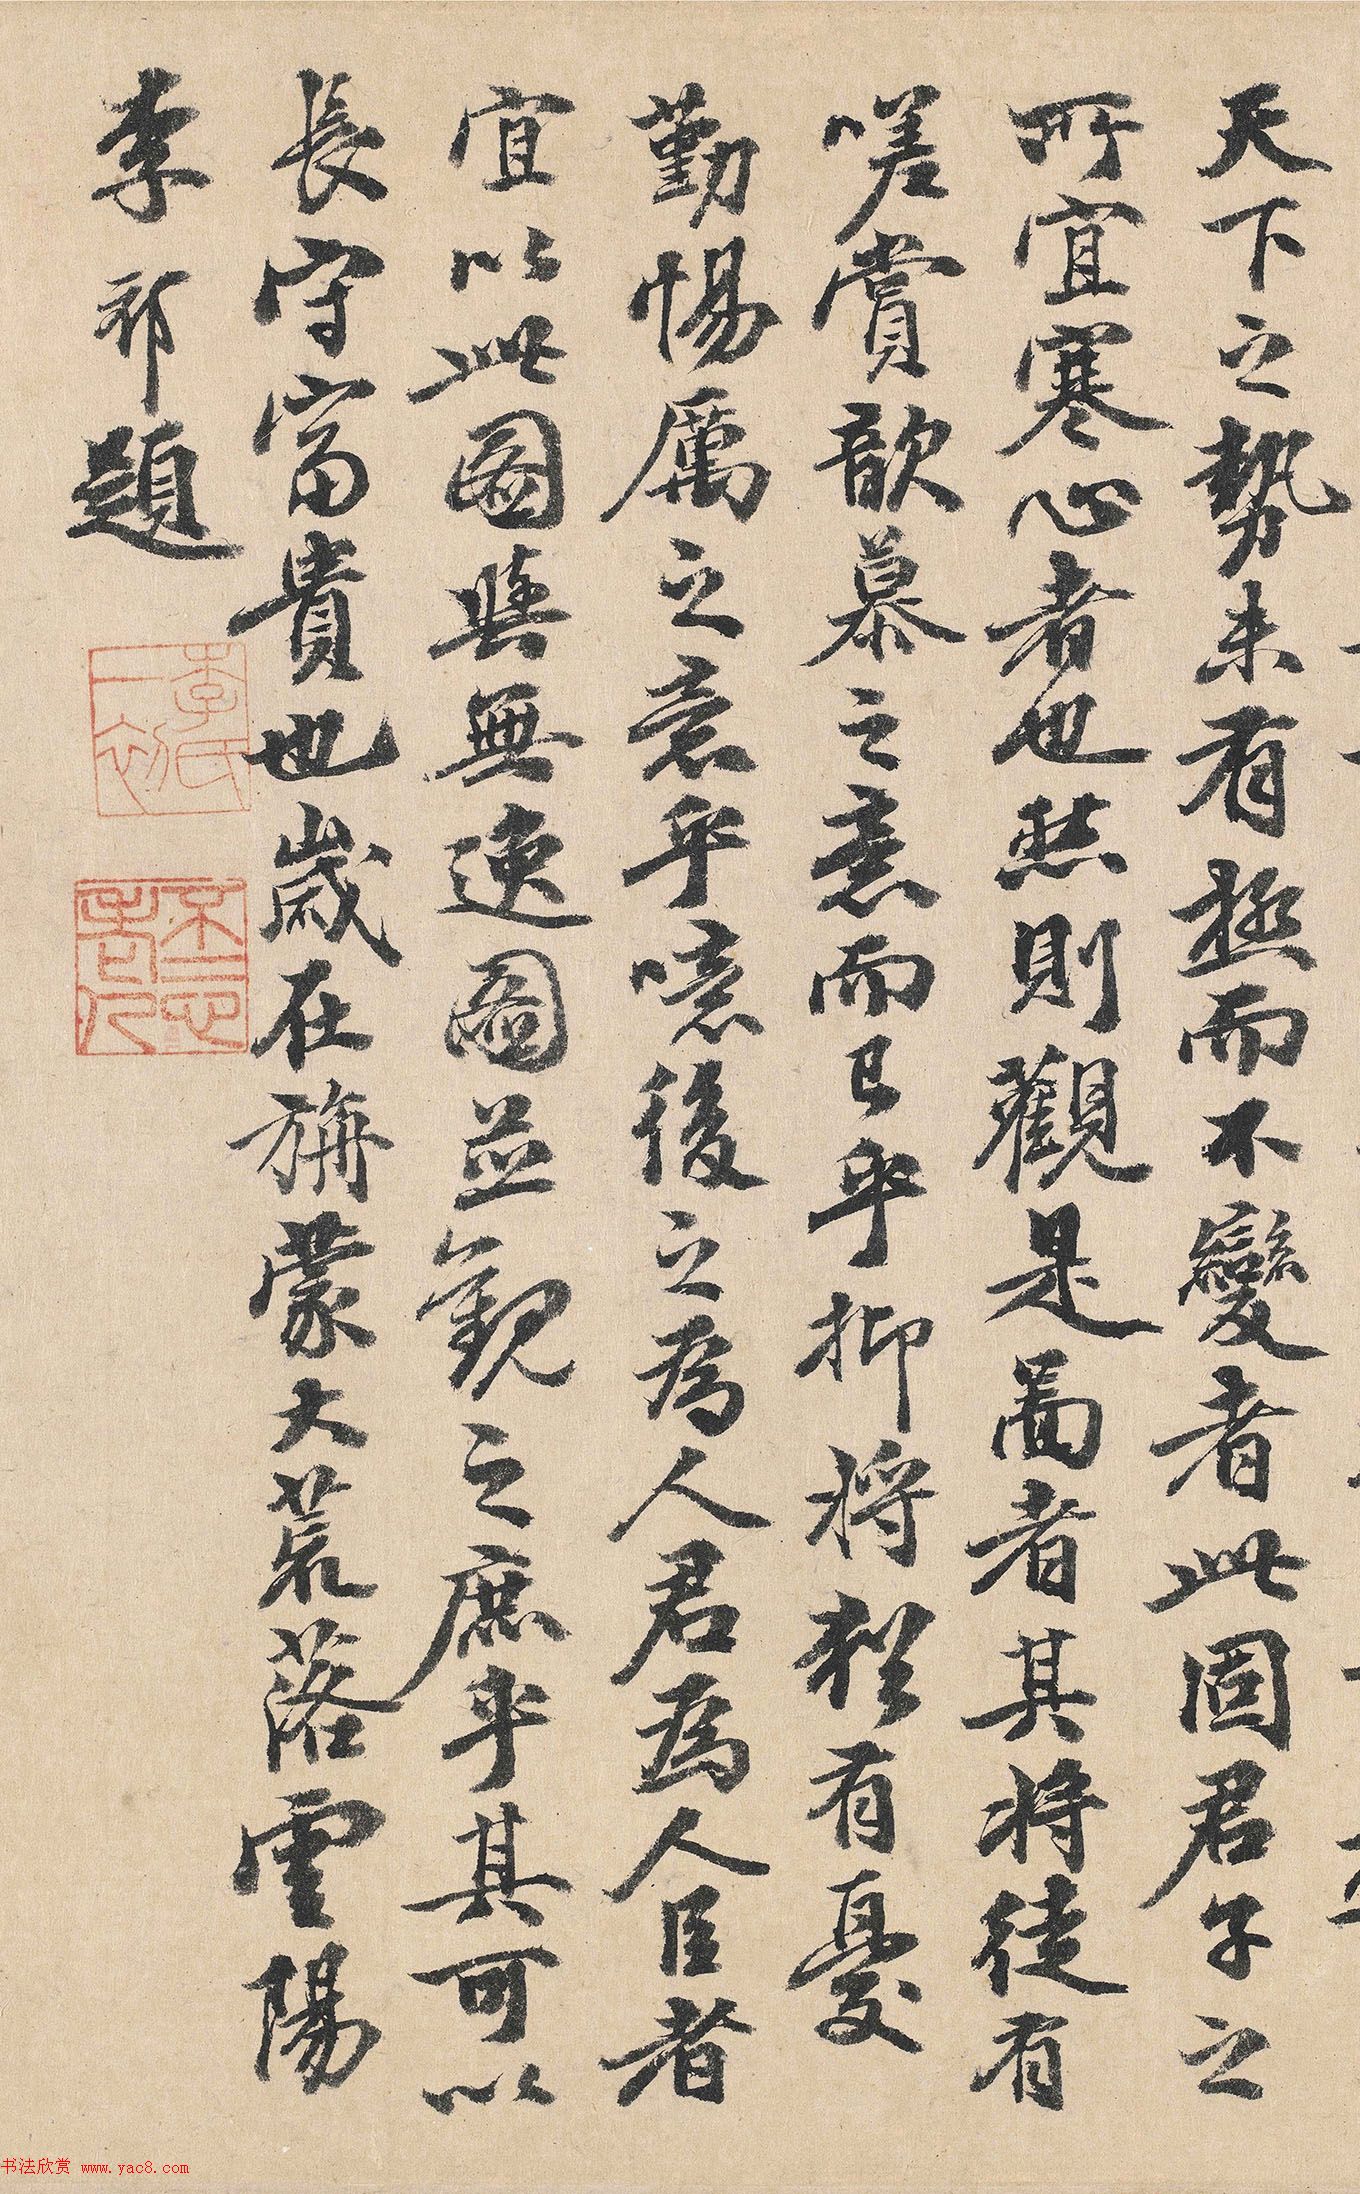 天下之勢未有極而不變者此固君子之
所宜寒心者也然則觀是圖者其將徒有
嗟賞歆慕之意而已乎抑將猶有憂
勤惕厲之意乎噫後之為人君為人臣者
宜以此圖與無逸圖並觀之庶乎其可以
長守富貴也歲在旃蒙大荒落雲陽
李祁題
李氏一初
不二心老人
书法欣赏 www.yac8.com